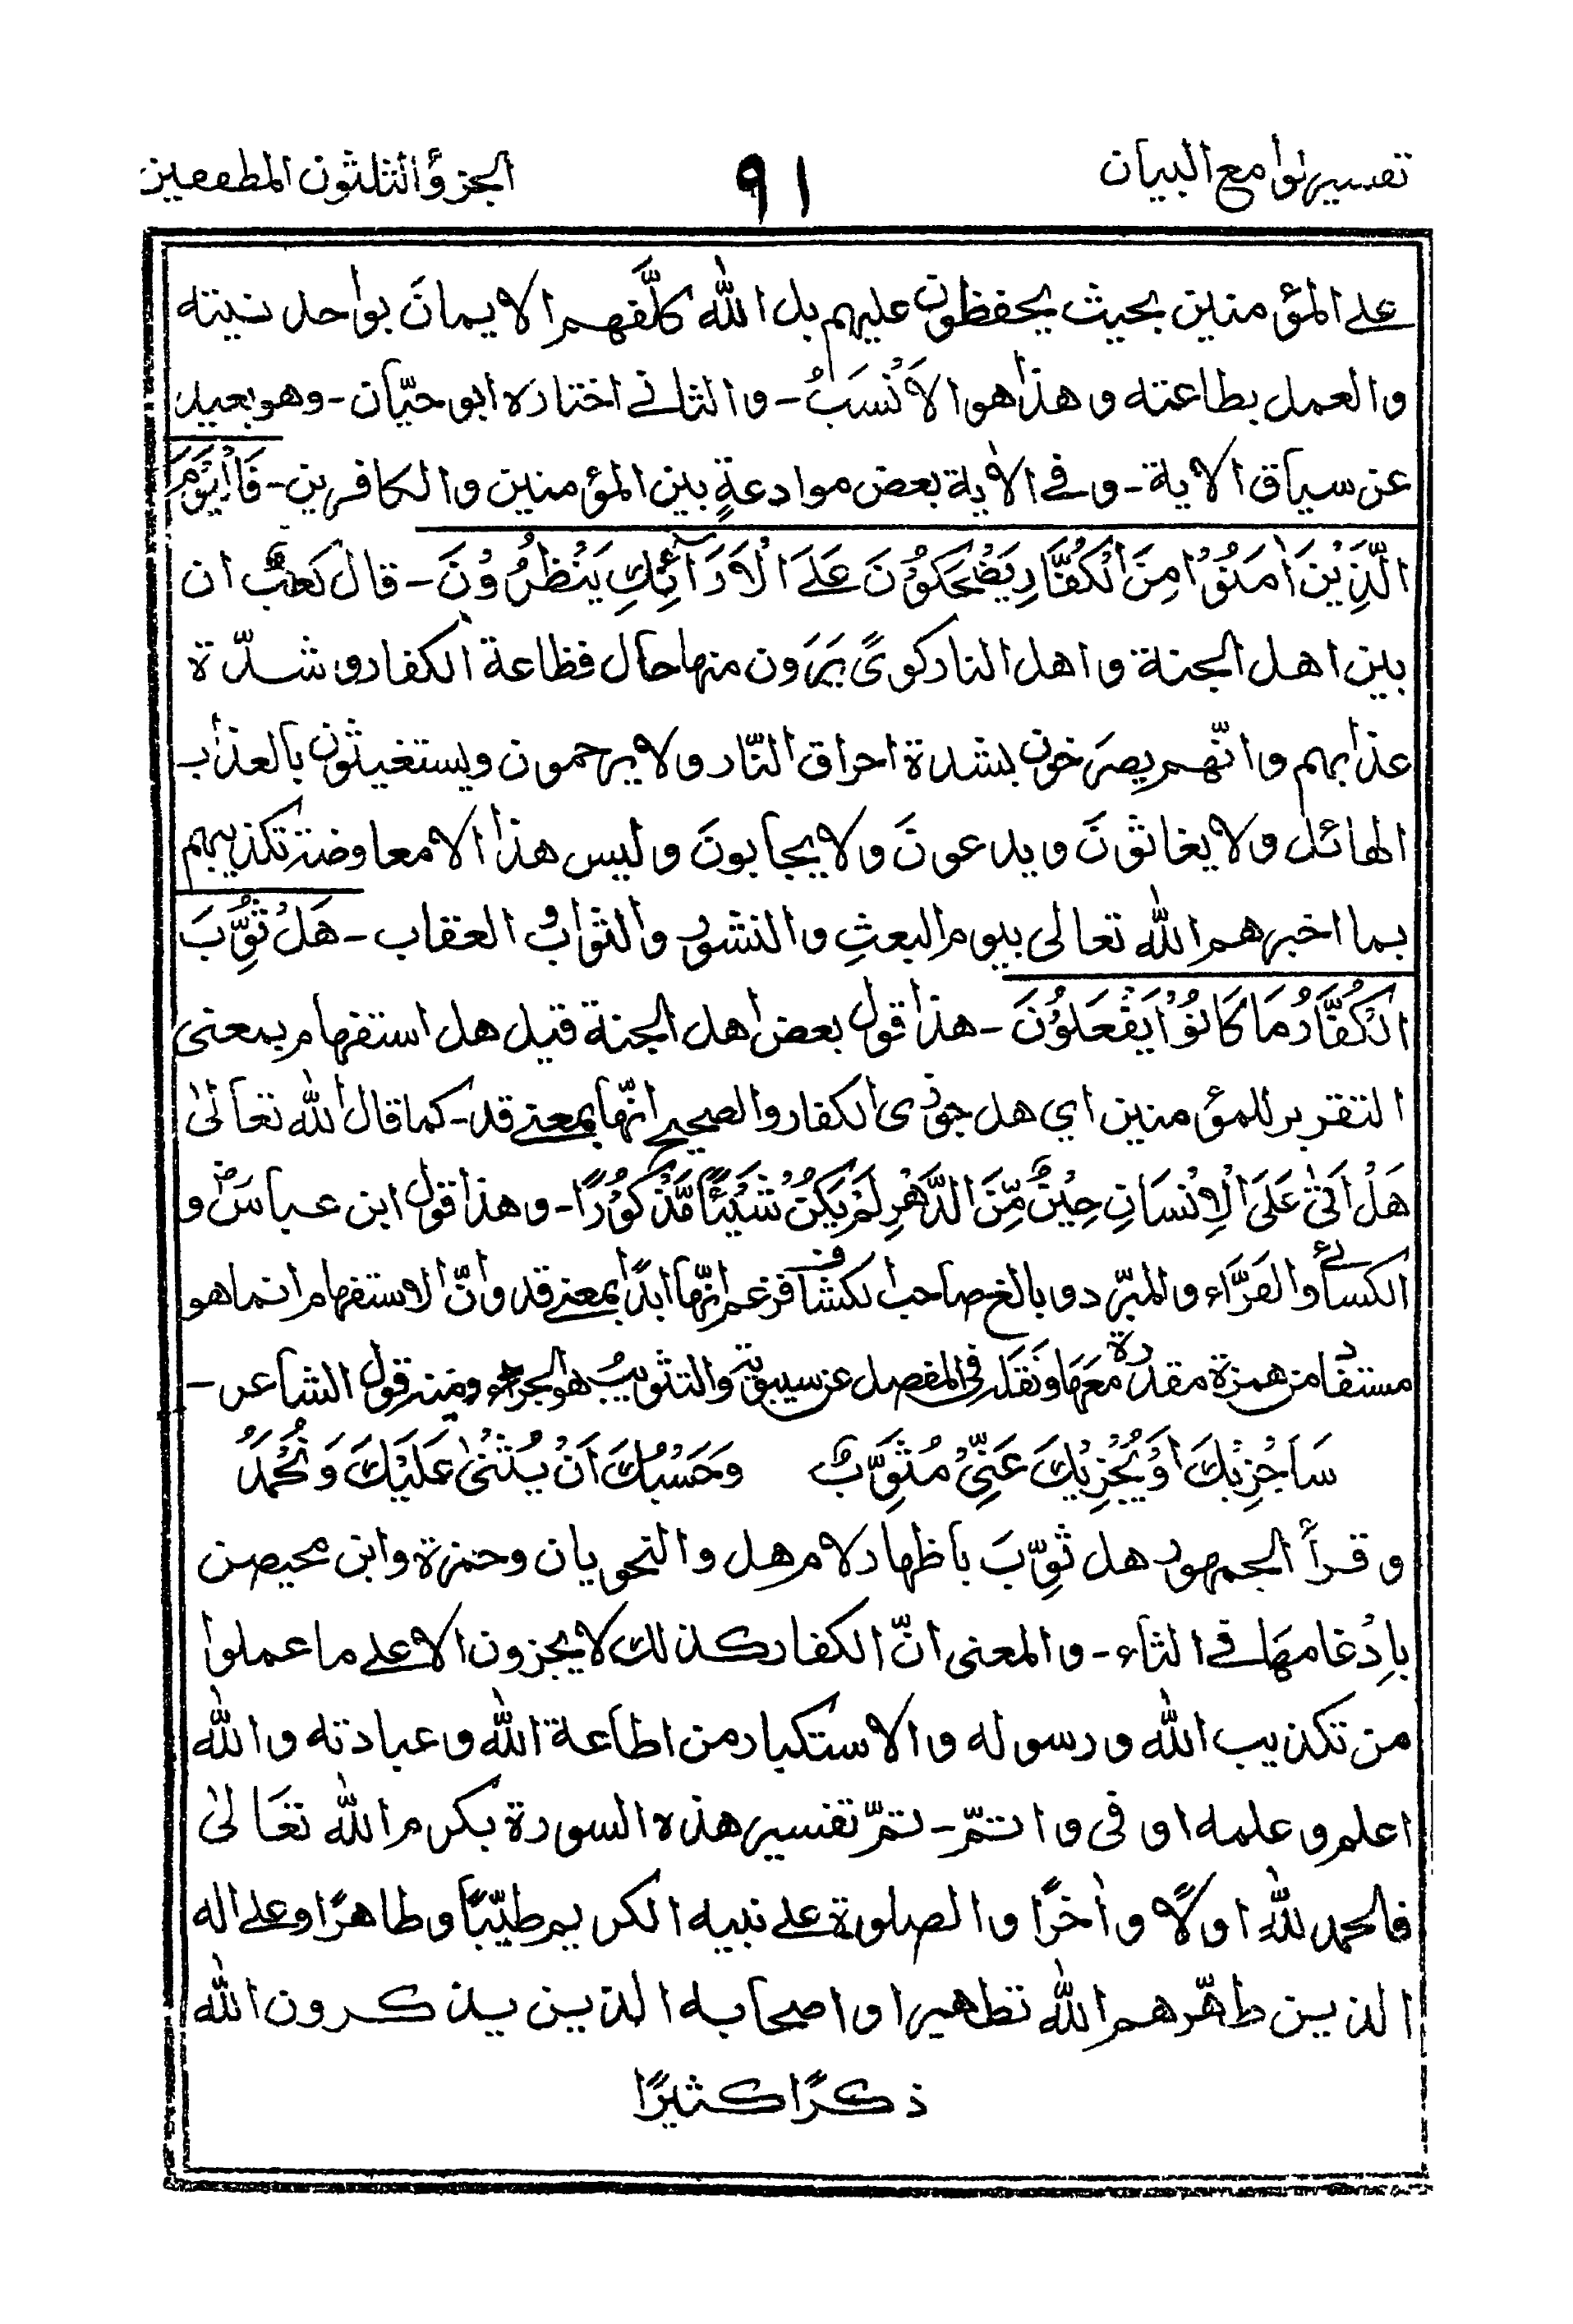 تفسير لوامع البيان
٩١
الجزؤ الثلثون المطففين
على المؤمنين بحيث يحفظون عليهم بل الله كلَّفهم الايمانَ بواحدنيته
والعمل بطاعته وهذا هو الاَنْسَبُ - والثاني اختاره ابو حيّان - وهو بعيد
عن سياق الاية - وفي الاٰية بعض موادعةٍ بين المؤمنين والكافرين - فَالْيَوْمَ
الَّذِيْنَ اٰمَنُوْا مِنَ الْكُفَّارِ يَضْحَكُوْنَ عَلَى الْاَرَآئِكِ يَنْظُرُوْنَ - قال كعبٌ ان
بين اهل الجنة واهل النار كوىً يَرَون منها حال فظاعة الكفار وشدّة
عذابهم وانّهم يصرَخون بشدة احراق النّار ولا يرحمون ويستغيثون بالعذاب
الهائل ولا يغاثونَ ويدعونَ ولا يجابونَ وليس هذا الا معاوضة تكذيبهم
بما اخبرهم الله تعالى بيوم البعثِ والنشور والثواب و العقاب - هَلْ ثُوِّبَ
الْكُفَّارُ مَا كَانُوْا يَفْعَلُوْنَ - هذا قول بعض اهل الجنة قيل هل استفهام بمعنى
التقرير للمؤمنين اي هل جوزى الكفار والصحيح انّها بمعنى قد - كما قال الله تعالىٰ
هَلْ اَتىٰ عَلَى الْاِنْسَانِ حِيْنٌ مِّنَ الدَّهْرِ لَمْ يَكُنْ شَيْئًا مَّذْكُوْرًا - وهذا قول ابن عباسؓ و
الكسائي والفَرَّاء والمبرّد وبالغ صاحب الكشاف فزعم انّها ابدًا بمعنى قد وانّ الاستفهام انما هو
مستفاد من همزة مقدرة معَها ونَقَلَه في المفصل عن سيبويه والتثويبُ هو الجزاء ومنه قول الشاعر -
سَاَجْزِيْكَ اَوْ يُجْزِيْكَ عَنِّيْ مُثَوِّبٌ وَحَسْبُكَ اَنْ يُثْنىٰ عَلَيْكَ وَتُحْمَدُ
وقرأ الجمهور هل ثوِّبَ باظهار لام هل والنحويان وحمزة وابن محيصن
بادْغامهَا في الثاء - والمعنى انّ الكفار كذلك لا يجزون الا على ما عملوا
من تكذيب الله ورسوله والاستكبار من اطاعة الله وعبادته والله
اعلم وعلمه اوفى واتمّ - تمّ تفسير هذه السورة بكرم الله تعَالىٰ
فالحمد للهِ اولًا واٰخرًا والصلوة على نبيه الكريم طيّبًا وطاهرًا وعلى اله
الذين طهّرهم الله تطهيرا واصحابه الذين يذكرون الله
ذكرًا كثيرًا